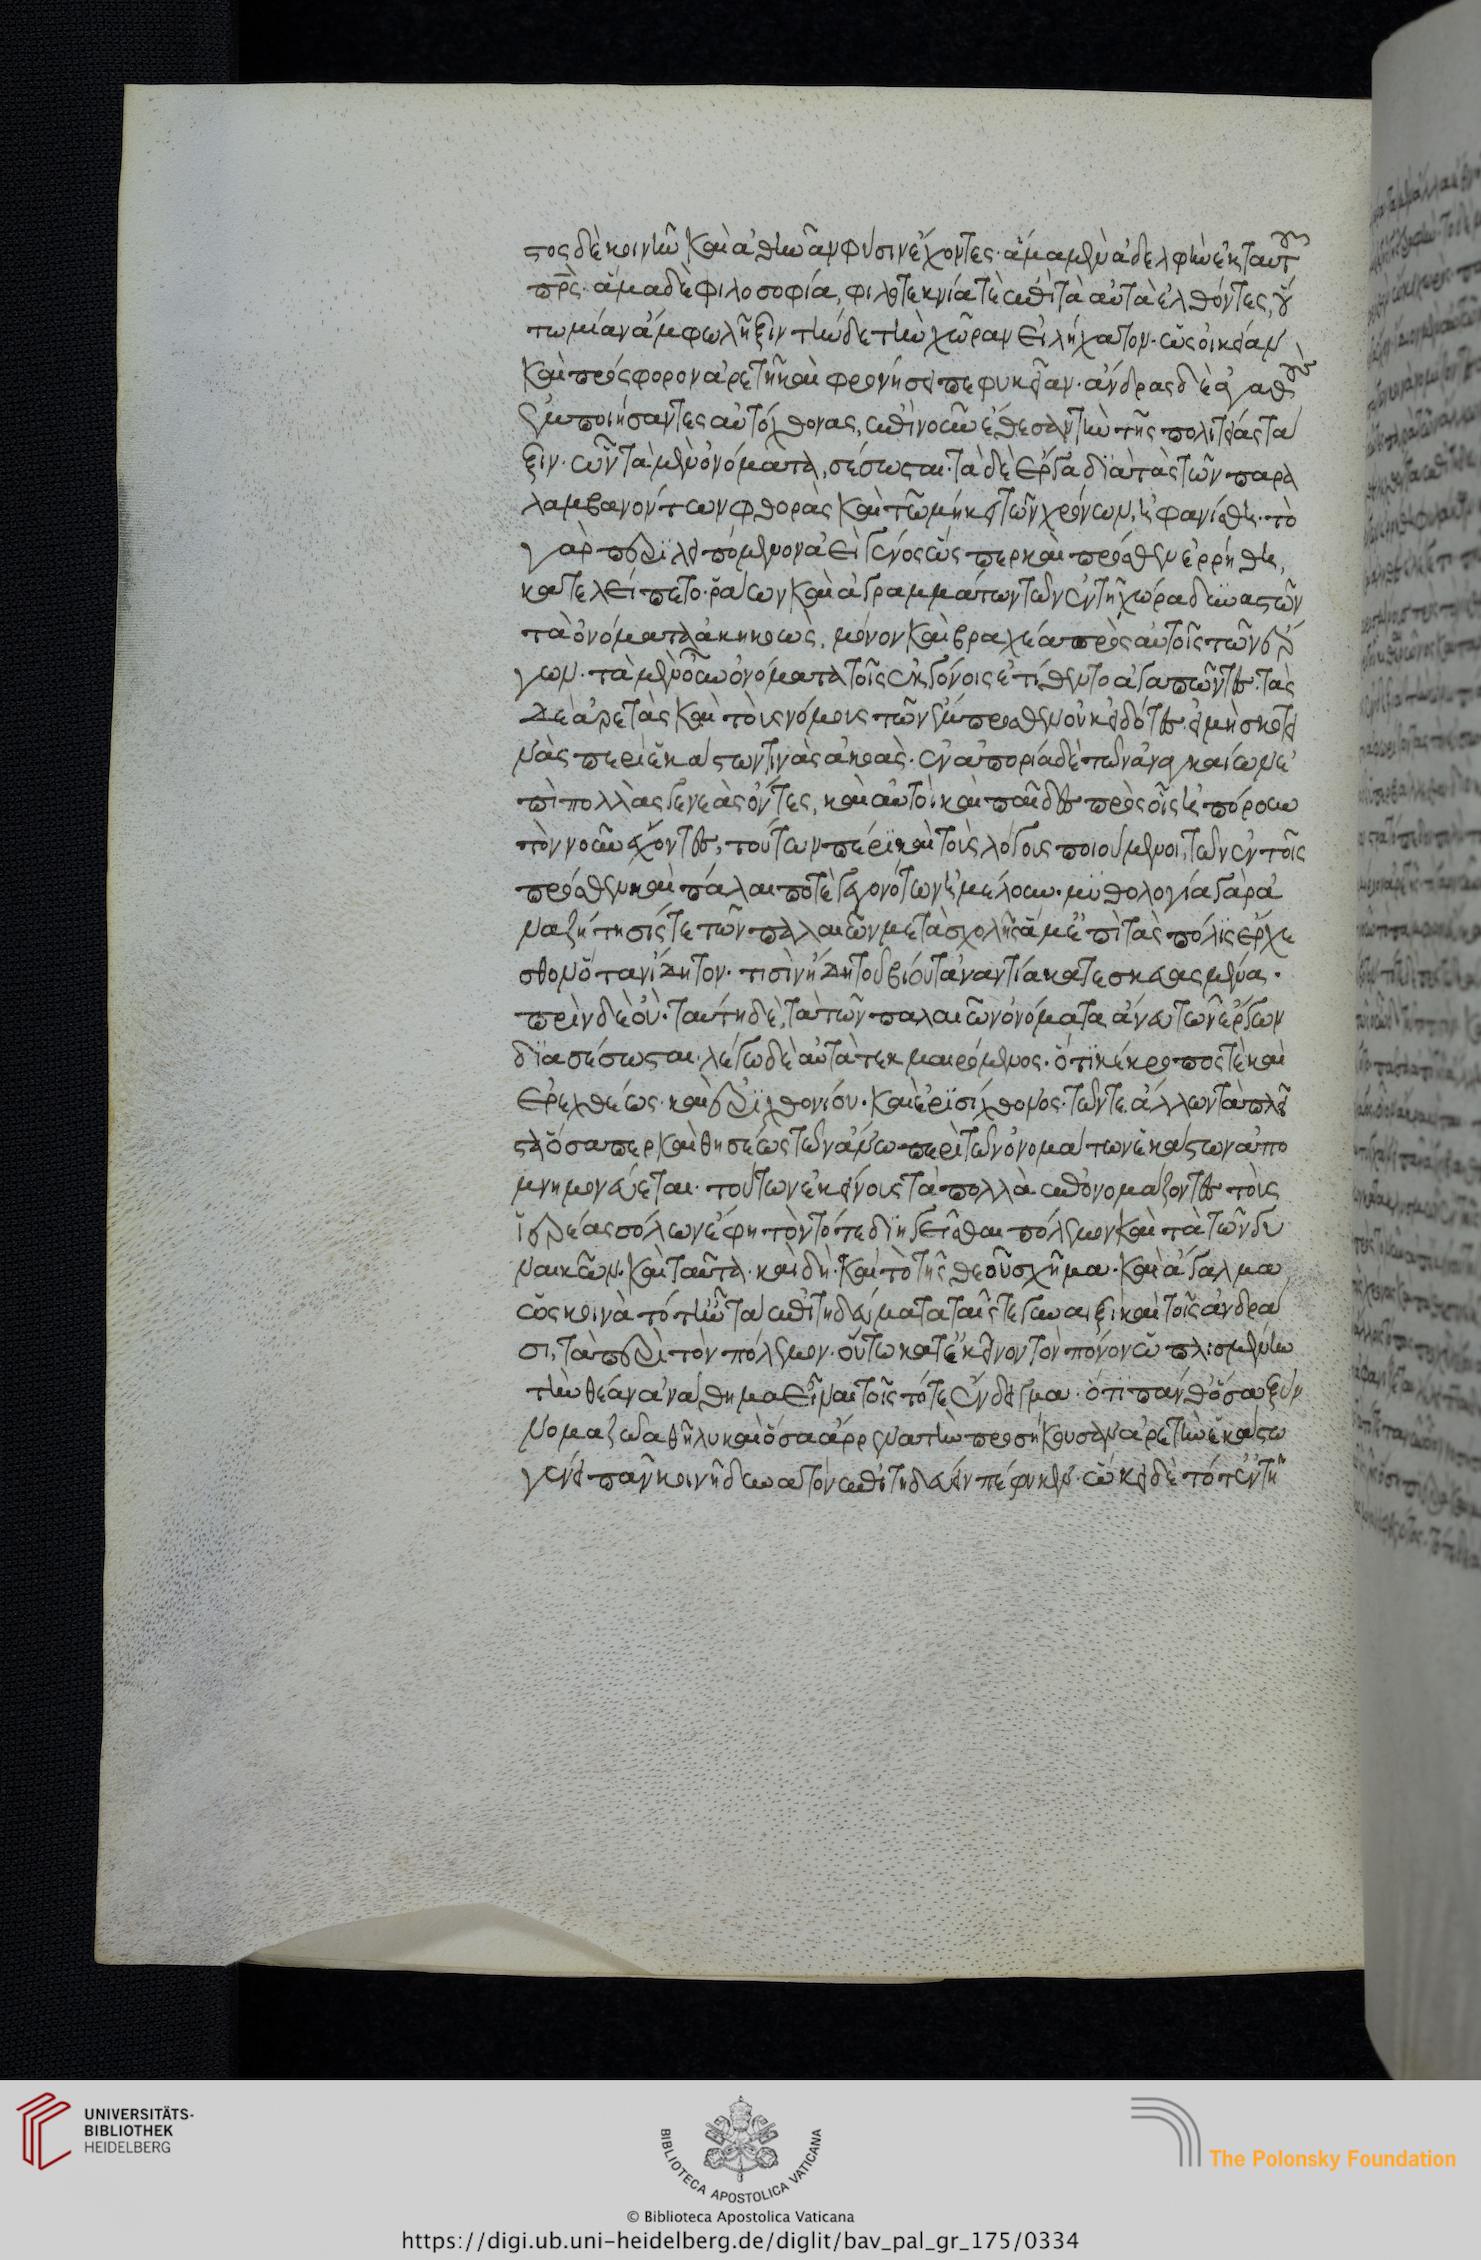 τος δὲ κοινὴν καὶ ἀθηνᾶν φύσιν ἔχοντες. ἅμα μὲν ἀδελφὴν ἐκ ταυτοῦ
πρς. ἅμα δὲ φιλοσοφία, φιλοτεχνία τὲ ἐπὶ τὰ αὐτὰ ἐλθόντες, οὕ
τω μίαν ἄμφω λῆξιν τήνδε τὴν χῶραν εἰλήχατον. ὡς οἰκείαν
καὶ πρόσφορον ἀρετῆ καὶ φρονήσει πεφυκεῖαν. ἄνδρας δὲ ἀγαθοὺς
ἐμποιήσαντες αὐτόχθονας, ἐπὶ νοῦν ἔθεσαν τὴν τῆς πολιτείας τά
ξιν. ὧν τὰ μὲν ὀνόματα, σέσωσται. τὰ δὲ ἔργα διὰ τὰς τῶν παρα
λαμβανόντων φθορὰς καὶ τὸ μῆκος τῶν χρόνων, ἠφανίσθη. τὸ
γὰρ περιλειπόμενον ἀεὶ γένος ὥσπερ καὶ πρόσθεν ἐρρήθη,
κατελείπετο. ὄρειον καὶ ἀγράμματον τῶν ἐν τῆ χώρα δυναστῶν
τὰ ὀνόματα ἀκηκοὼς, μόνον καὶ βραχέα πρὸς αὐτοῖς τῶν ἔρ
γων. τὰ μὲν οὖν ὀνόματα τοῖς ἐκγόνοις ἐτίθεντο ἀγαπῶντες. τὰς
δὲ ἀρετὰς καὶ τοὺς νόμους τῶν ἔμπροσθεν οὐκ εἰδότες. εἰ μὴ σκοτει
νὰς περὶ ἑκάστων τινὰς ἀκοὰς. ἐν ἀπορία δὲ τῶν ἀναγκαίων ἐ
πὶ πολλὰς γενεὰς ὄντες, καὶ αὐτοὶ καὶ παῖδες πρὸς οἷς ἠπόρουν
τὸν νοῦν ἔχοντες, τούτων πέρι καὶ τοὺς λόγους ποιούμενοι, τῶν ἐν τοῖς
πρόσθεν καὶ πάλαι ποτὲ γεγονότων ἠμέλουν. μυθολογία γὰρ ἀ
ναζήτησίς τε τῶν παλαιῶν μετὰ σχολῆς ἅμ' ἐπὶ τὰς πόλις ἔρχε
σθον ὅταν ἴδητον. τισὶν ἤδη τοῦ βίου τἀναντία κατεσκευασμένα.
πρὶν δὲ οὔ. ταύτη δὲ, τὰ τῶν παλαιῶν ὀνόματα ἄνευ τῶν ἔργων
διασέσωσται. λέγω δὲ αὐτὰ τεκμαιρόμενος. ὅτι κέκροπός τε καὶ
ἐρεχθέως. καὶ ἐριχθονίου. καὶ ἐρισίχθονος. τῶν τε ἄλλων τὰ πλεῖ
στα ὅσαπερ καὶ θησέως τῶν ἄνω περὶ τῶν ὀνομάτων ἑκάστων ἀπο
μνημονεύεται. τούτων ἐκείνοις τὰ πολλὰ ἐπονομάζοντες τοὺς
ἱερέας σόλων ἔφη τὸν τότε διηγεῖσθαι πόλεμον καὶ τὰ τῶν γυ
ναικῶν. καὶ ταῦτα. καὶ δὴ. καὶ τὸ τῆς θεοῦ σχῆμα. καὶ ἄγαλμα
ὡς κοινὰ τότ' ἦν τὰ ἐπιτηδεύματα ταῖς τε γυναιξὶ καὶ τοῖς ἀνδρά
σι, τὰ περὶ τὸν πόλεμον. οὕτω κατ' ἐκεῖνον τὸν πόνον ὡπλισμένην
τὴν θεὰν ἀνάθημα εἶναι τοῖς τότε ἔνδειγμα. ὅτι πάνθ' ὅσα ξύν
νομα ζῶα θήλυ καὶ ὅσα ἄρρενα τὴν προσήκουσαν ἀρετὴν ἑκάστω
γένει πᾶν κοινῆ δυνατὸν ἐπιτηδεύειν πέφυκεν. ὤκει δὲ τότ' ἐν τῆ
UNIVERSITÄTS-
BIBLIOTHEK
HEIDELBERG
BIBLIOTECA APOSTOLICA VATICANA
The Polonsky Foundation
© Biblioteca Apostolica Vaticana
https://digi.ub.uni-heidelberg.de/diglit/bav_pal_gr_175/0334